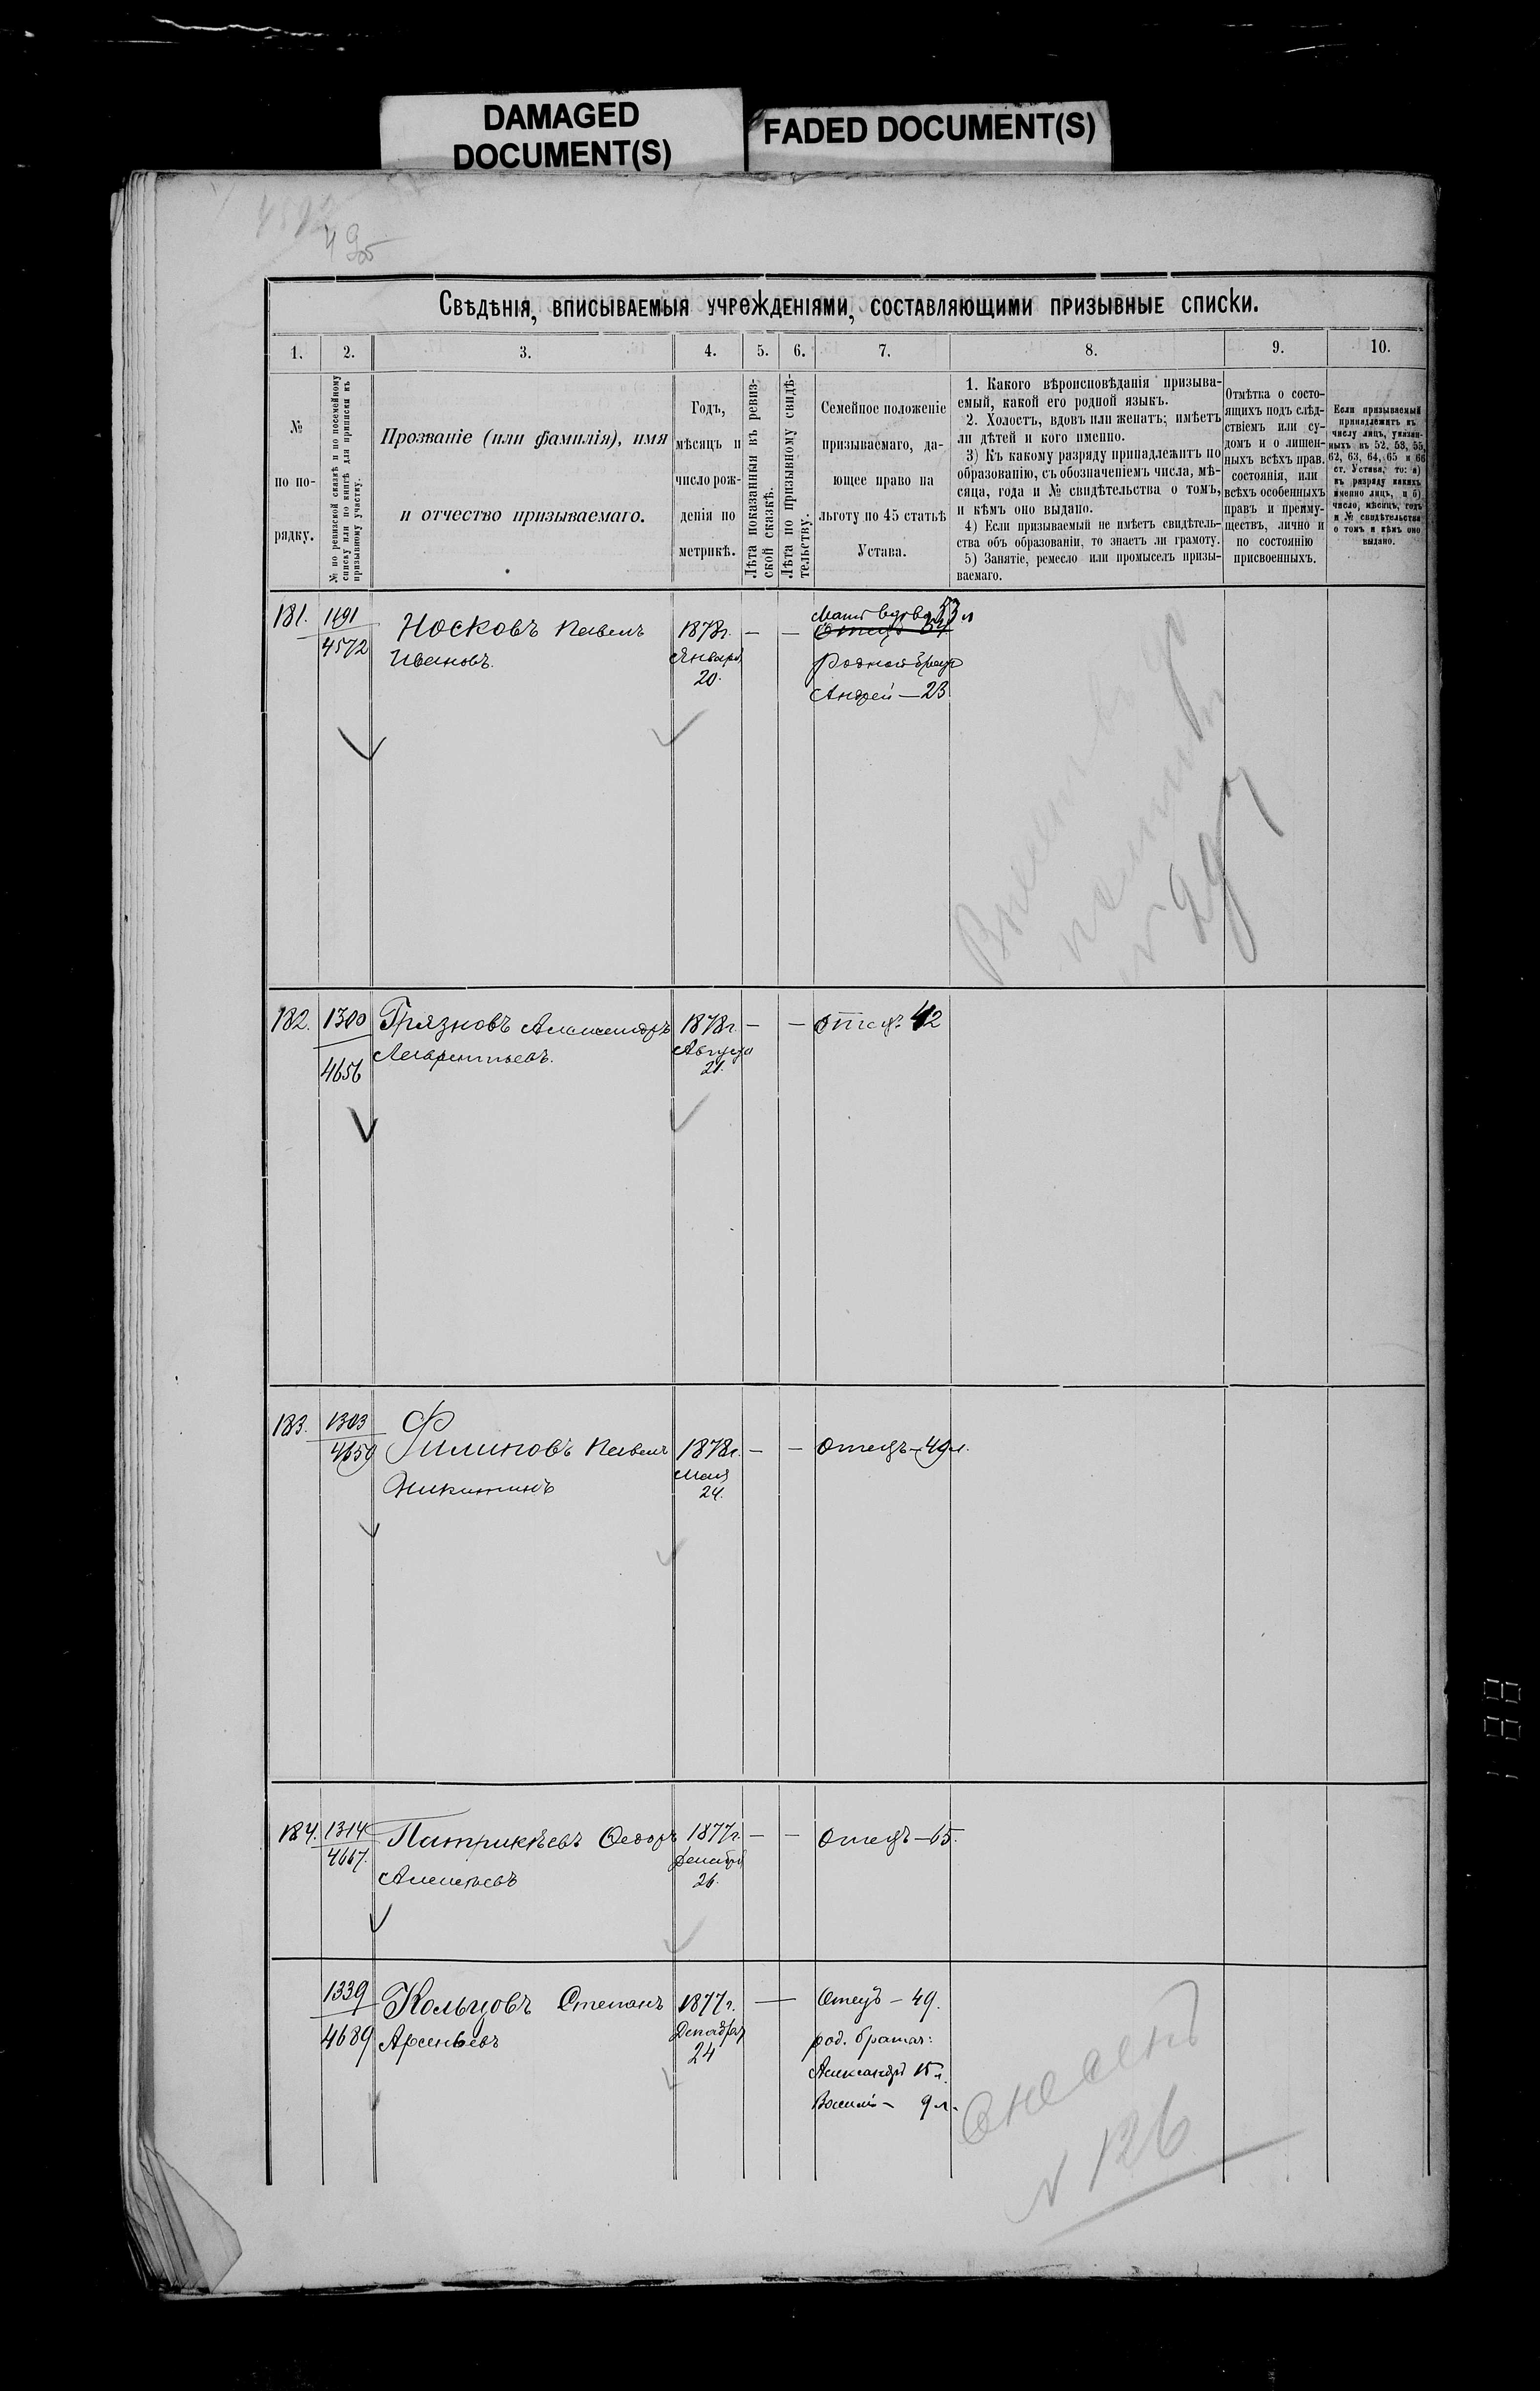 DAMAGED
DOCUMENT(S)
FADED DOCUMENT(S)
495
Свѣдѣнія, вписываемыя учрежденіями, составляющими призывные списки.
1.
2.
3.
4.
5.
6.
7.
8.
9.
10.
№
по по-
рядку.
№ по ревизской сказкѣ и по посемейному
списку или по книгѣ для приписки къ
призывному участку.
Прозваніе (или фамилія), имя
и отчество призываемаго.
Годъ,
мѣсяцъ и
число рож-
денія по
метрикѣ.
Лѣта показанныя въ ревиз-
ской сказкѣ.
Лѣта по призывному свидѣ-
тельству.
Семейное положеніе
призываемаго, да-
ющее право на
льготу по 45 статьѣ
Устава.
1. Какого вѣроисповѣданія призыва-
емый, какой его родной языкъ.
2. Холостъ, вдовъ или женатъ; имѣетъ
ли дѣтей и кого именно.
3) Къ какому разряду принадлежитъ по
образованію, съ обозначеніемъ числа, мѣ-
сяца, года и № свидѣтельства о томъ,
и кѣмъ оно выдано.
4) Если призываемый не имѣетъ свидѣтель-
ства объ образованіи, то знаетъ ли грамоту.
5) Занятіе, ремесло или промыселъ призы-
ваемаго.
Отмѣтка о состо-
ящихъ подъ слѣд-
ствіемъ или су-
домъ и о лишен-
ныхъ всѣхъ прав.
состоянія, или
всѣхъ особенныхъ
правъ и преиму-
ществъ, лично и
по состоянію
присвоенныхъ.
Если призываемый
принадлежитъ къ
числу лицъ, указан-
ныхъ въ 52, 53, 55,
62, 63, 64, 65 и 66
ст. Устава, то: а)
къ разряду какихъ
именно лицъ, и б)
число, мѣсяцъ, годъ
и № свидѣтельства
о томъ и кѣмъ оно
выдано.
181.
4572
Носковъ Павелъ
Ивановъ.
1878г.
Января
20.
— —
Мать вдова 53 л
Родной братъ
Андрей — 23
№ 297
182.
1300
4656
Грязновъ Александръ
Лаврентьевъ.
1878г.
Августа
21.
— —
отецъ 42
183.
1303
4659
Филиновъ Павелъ
Никитинъ
1878г.
Мая
24.
— —
отецъ — 49 л.
184.
1314
4667.
Патрикѣевъ Ѳедоръ
Алексѣевъ
1877г.
Декабря
26.
— —
отецъ — 65.
1339
4689
Кольцовъ Степанъ
Арсеньевъ
1877г.
Декабря
24
—
Отецъ — 49.
род. братья:
Александръ 15 л.
Василій — 9 л.
№ 126
188